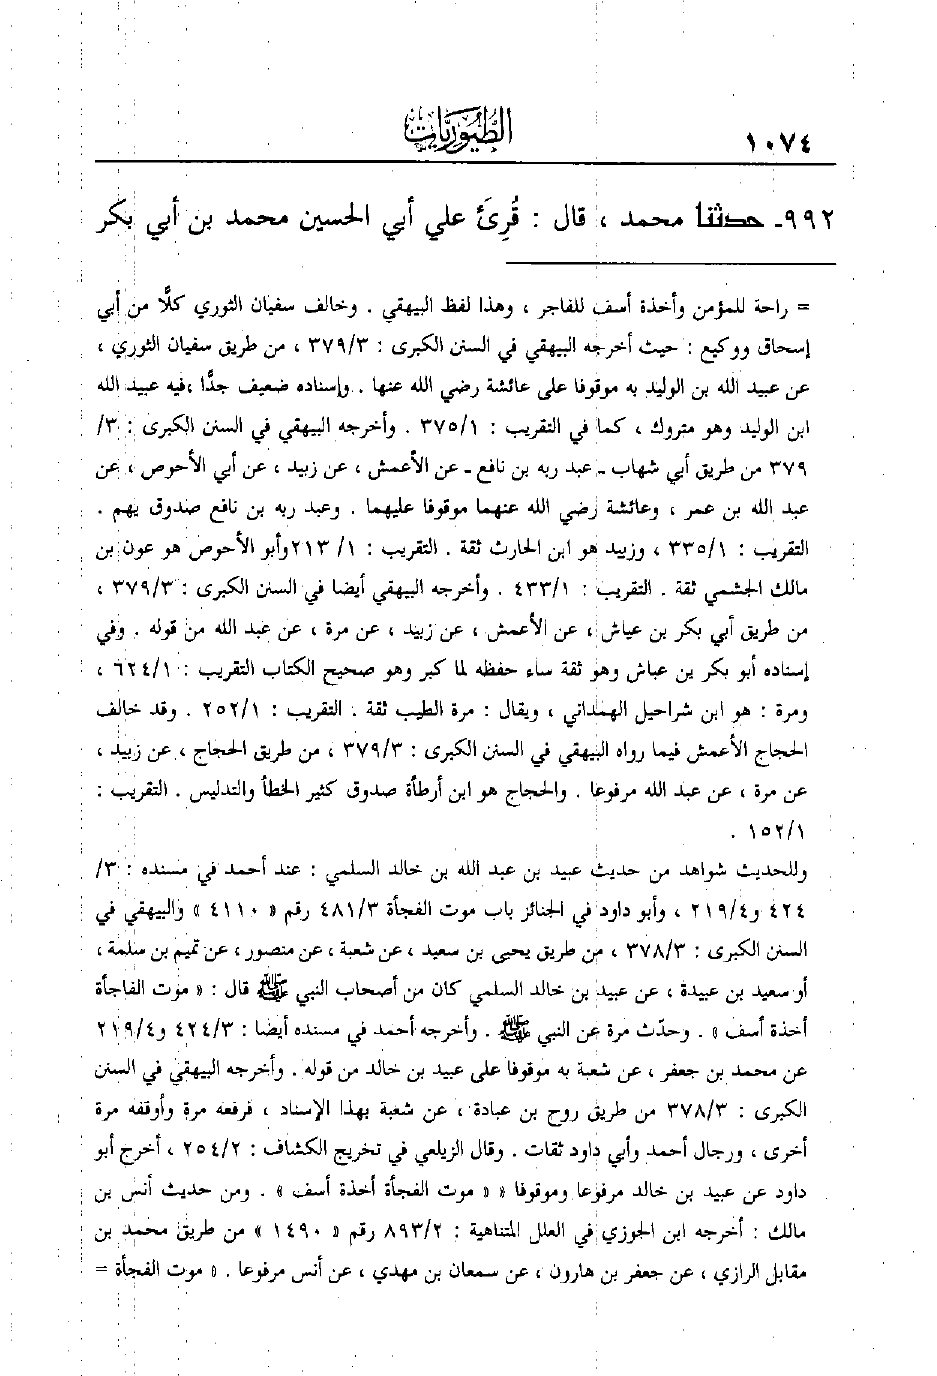 ١٠٧٤
الطيوريات
٩٩٢ـ حدثنا محمد ، قال : قُرِئَ على أبي الحسين محمد بن أبي بكر
= راحة للمؤمن وأخذة أسف للفاجر ، وهذا لفظ البيهقي . وخالف سفيان الثوري كلًّا من أبي
إسحاق ووكيع : حيث أخرجه البيهقي في السنن الكبرى : ٣٧٩/٣ ، من طريق سفيان الثوري ،
عن عبيد الله بن الوليد به موقوفا على عائشة رضي الله عنها . وإسناده ضعيف جدًّا ،فيه عبيد الله
ابن الوليد وهو متروك ، كما في التقريب : ٣٧٥/١ . وأخرجه البيهقي في السنن الكبرى : ٣/
٣٧٩ من طريق أبي شهاب ـ عبد ربه بن نافع ـ عن الأعمش ، عن زبيد ، عن أبي الأحوص ، عن
عبد الله بن عمر ، وعائشة رضي الله عنهما موقوفا عليهما . وعبد ربه بن نافع صدوق يهم .
التقريب : ٣٣٥/١ ، وزبيد هو ابن الحارث ثقة . التقريب : ١/ ٢١٣وأبو الأحوص هو عون بن
مالك الجشمي ثقة . التقريب : ٤٣٣/١ . وأخرجه البيهقي أيضا في السنن الكبرى : ٣٧٩/٣ ،
من طريق أبي بكر بن عياش ، عن الأعمش ، عن زبيد ، عن مرة ، عن عبد الله من قوله . وفي
إسناده أبو بكر بن عياش وهو ثقة ساء حفظه لما كبر وهو صحيح الكتاب التقريب : ٦٢٤/١ ،
ومرة : هو ابن شراحيل الهمداني ، ويقال : مرة الطيب ثقة . التقريب : ٢٥٢/١ . وقد خالف
الحجاج الأعمش فيما رواه البيهقي في السنن الكبرى : ٣٧٩/٣ ، من طريق الحجاج ، عن زبيد ،
عن مرة ، عن عبد الله مرفوعا . والحجاج هو ابن أرطأة صدوق كثير الخطأ والتدليس . التقريب :
١٥٢/١ .
وللحديث شواهد من حديث عبيد بن عبد الله بن خالد السلمي : عند أحمد في مسنده : ٣/
٤٢٤ و٢١٩/٤ ، وأبو داود في الجنائز باب موت الفجأة ٤٨١/٣ رقم « ٤١١٠ » والبيهقي في
السنن الكبرى : ٣٧٨/٣ ، من طريق يحيى بن سعيد ، عن شعبة ، عن منصور ، عن تميم بن سلمة ،
أو سعيد بن عبيدة ، عن عبيد بن خالد السلمي كان من أصحاب النبي ﷺ قال : « موت الفاجأة
أخذة أسف » . وحدّث مرة عن النبي ﷺ . وأخرجه أحمد في مسنده أيضا : ٤٢٤/٣ و٢١٩/٤
عن محمد بن جعفر ، عن شعبة به موقوفا على عبيد بن خالد من قوله . وأخرجه البيهقي في السنن
الكبرى : ٣٧٨/٣ من طريق روح بن عبادة ، عن شعبة بهذا الإسناد ، فرفعه مرة وأوقفه مرة
أخرى ، ورجال أحمد وأبي داود ثقات . وقال الزيلعي في تخريج الكشاف : ٢٥٤/٢ ، أخرج أبو
داود عن عبيد بن خالد مرفوعا وموقوفا « « موت الفجأة أخذة أسف » . ومن حديث أنس بن
مالك : أخرجه ابن الجوزي في العلل المتناهية : ٨٩٣/٢ رقم « ١٤٩٠ » من طريق محمد بن
مقابل الرازي ، عن جعفر بن هارون ، عن سمعان بن مهدي ، عن أنس مرفوعا . « موت الفجأة =